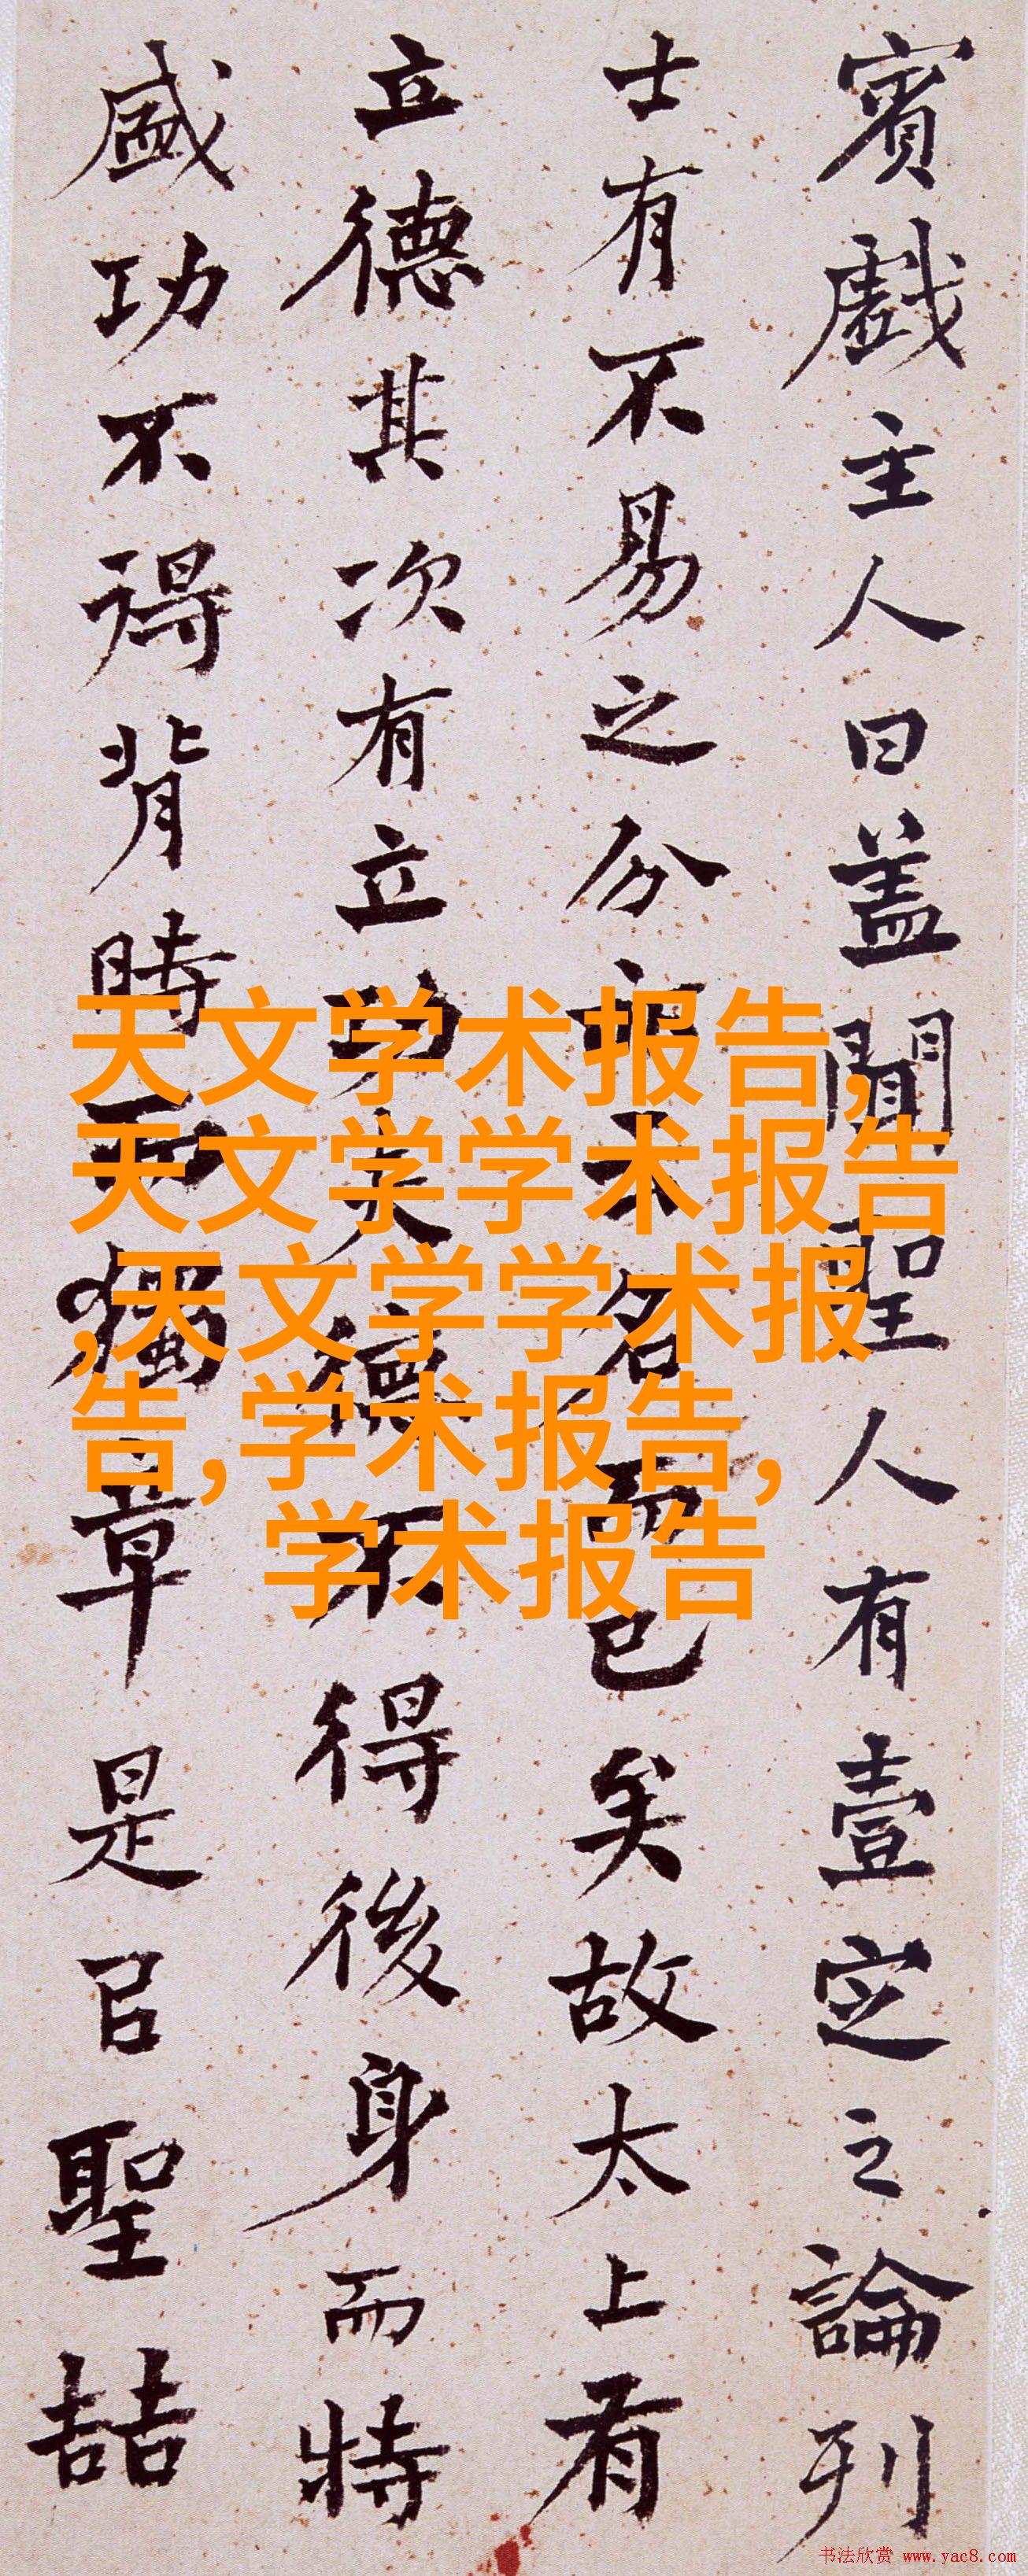 賓戲主人曰盖聞聖人有壹定之論列
士有不易之分亦云名而已矣故太上有
立德其次有立功夫德不得後身而特
盛功不得背時而獨章是㠯聖喆
天文学术报告,
天文学学术报告
,天文学学术报
告,学术报告,
学术报告
书法欣赏 www.yac8.com